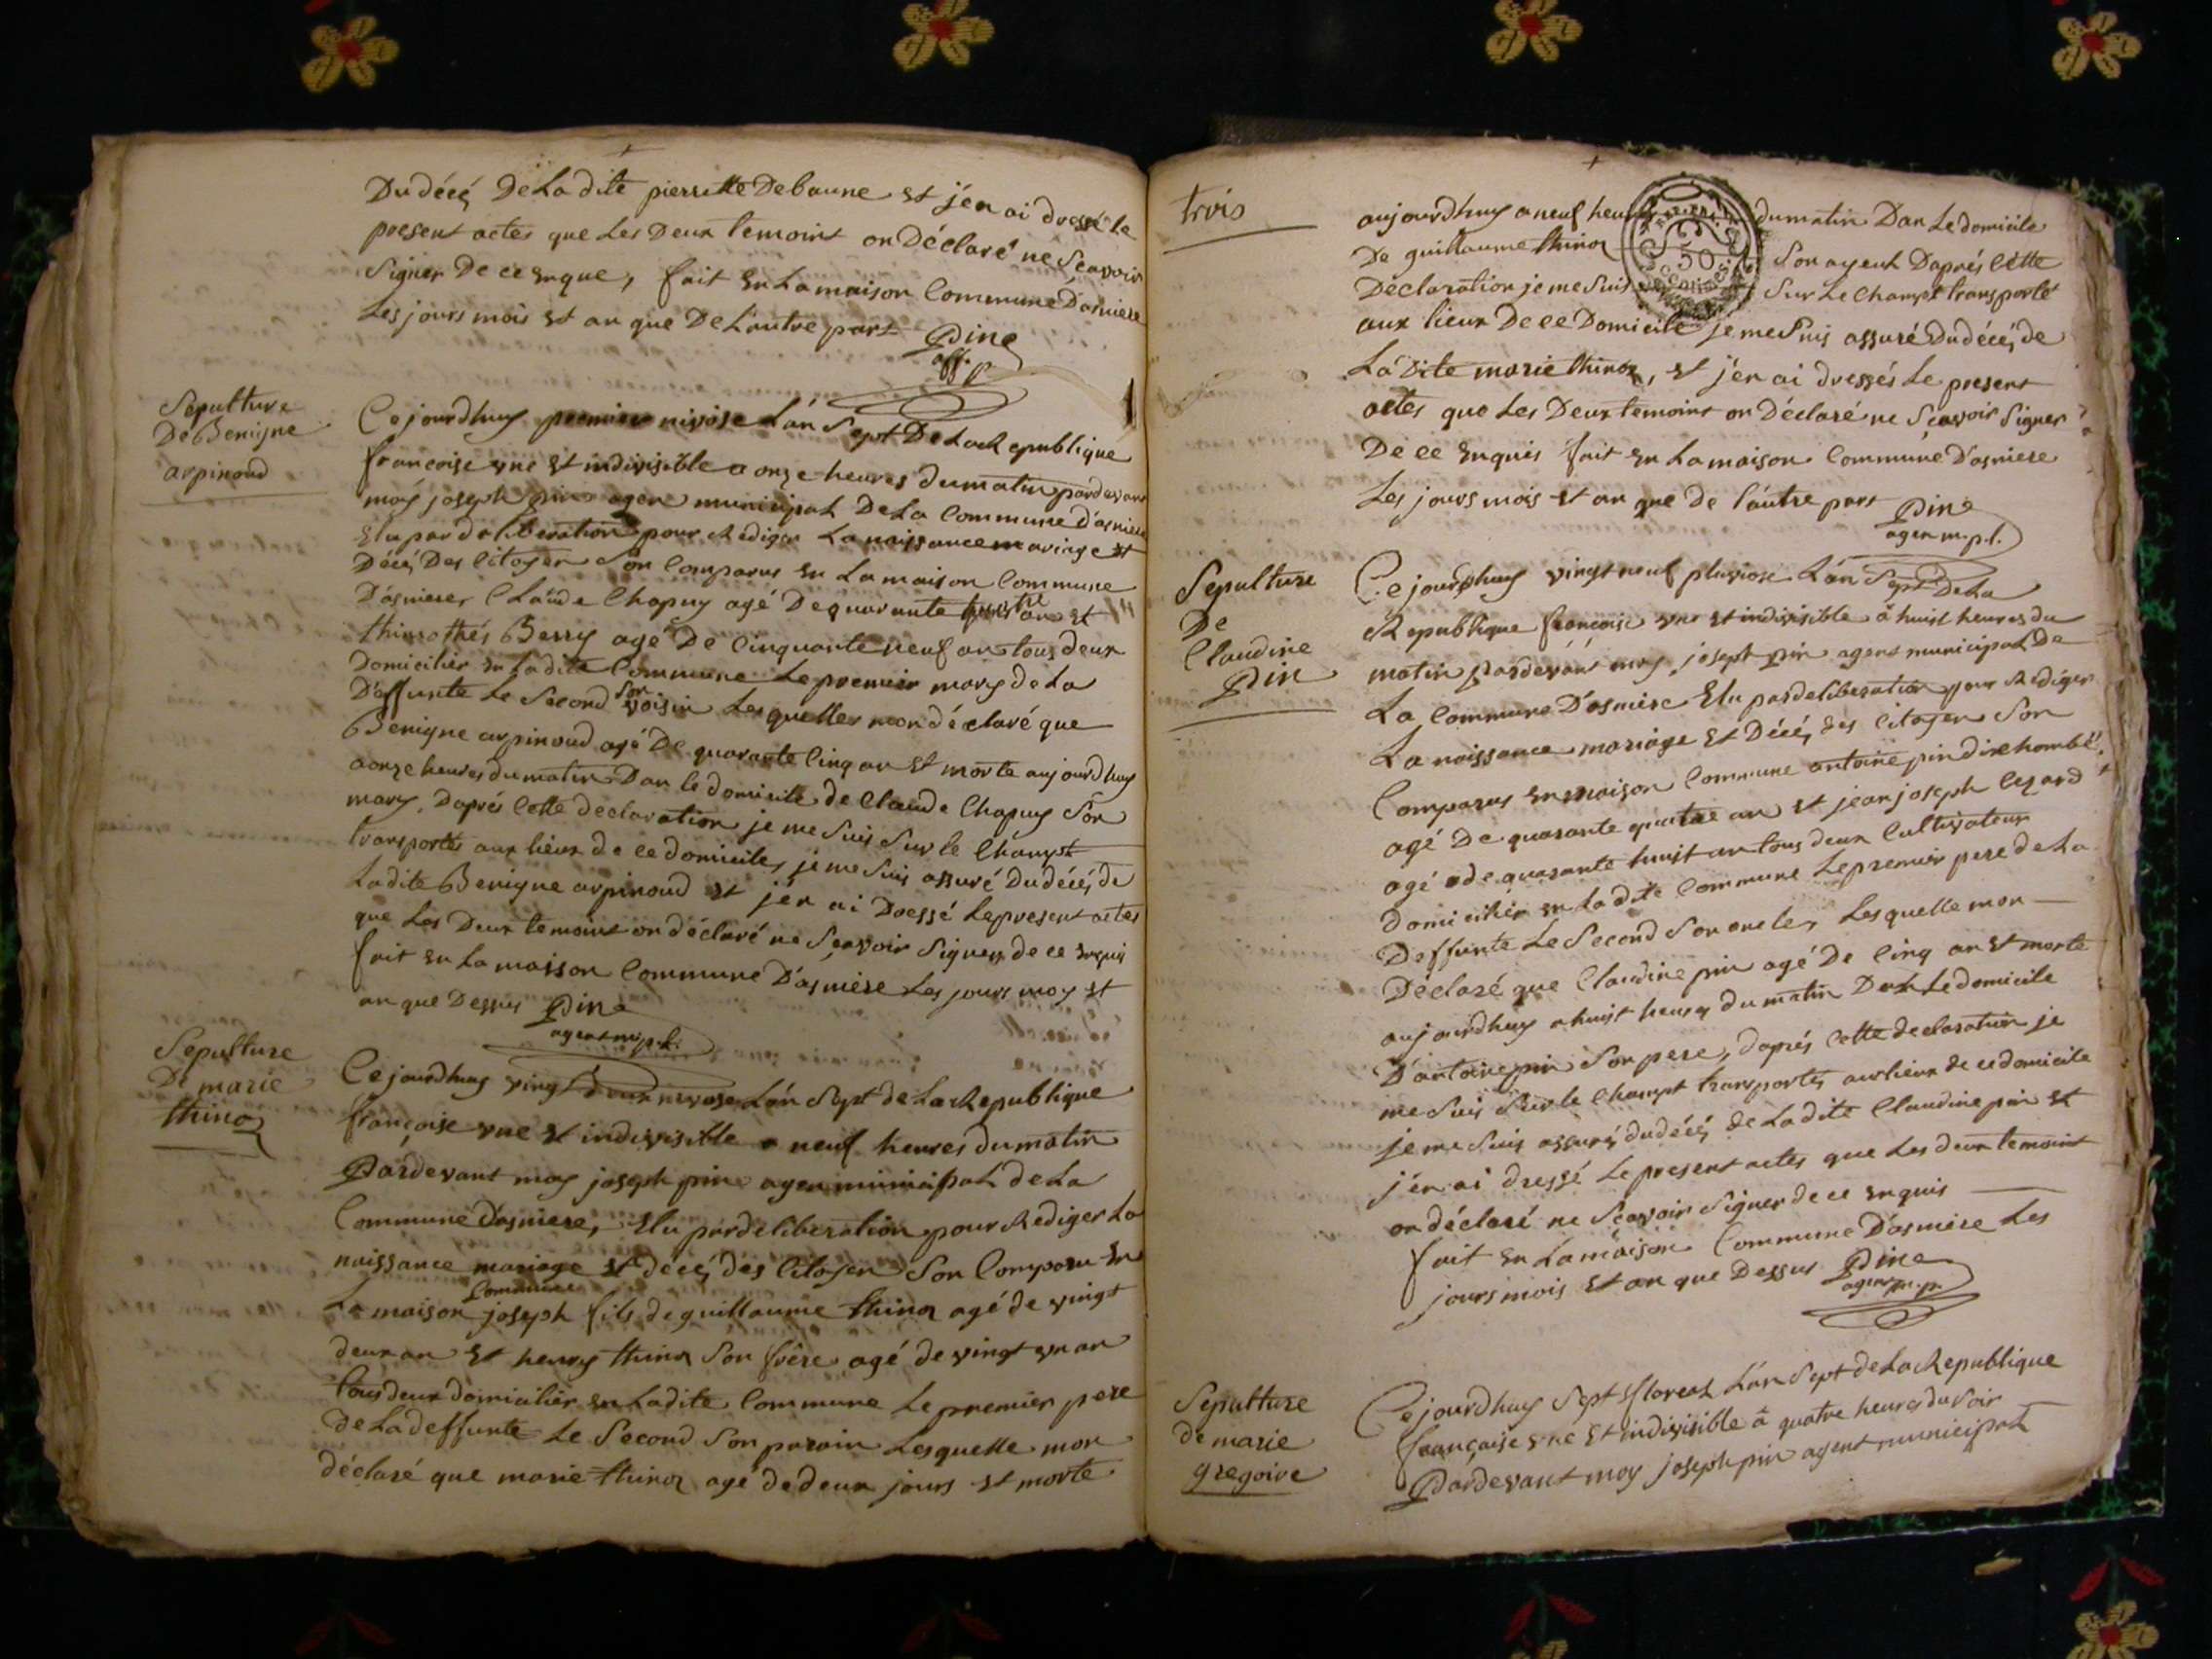 Du décé, De La dite pierrette Debaune et j'en ai dressé le
present actes que Les Deux temoint on Déclaré ne Scavoir
Signer De ce enque, fait en La maison Commune D'asniere
Les jours mois et an que De L'autre part Pine
aff. p
Sepulture
De Benigne
arpinoud
Ce jourdhuy premier nivose L'an Sept De La Republique
francoise une et indivisible a onze heures du matin pardevant
moy joseph pin agen municipal De La Commune d'asniere
Elu par deliberation pour Rediger La naissance mariage et
Décé, Des Citoyen Son Comparus en La maison Commune
D'asniere, Claude Chapuy agé De quarante quatre an et
thimothés Berry agé De Cinquante neuf an tous deux
Domicilier en La dite Commune Le premier mary de La
Deffunte Le Second son voisin Lesquelles mon déclaré que
Benigne arpinoud agé De quarante Cinq an et morte aujourdhuy
a onze heures du matin Dan le domicile de Claude Chapuy Son
mary, Daprés Cette declaration je me Suis Sur le Champt
transportés aux lieux de ce domicile, je me Suis assuré Du décé, de
La dite Benigne arpinoud et j'en ai Dressé Le present actes
que Les Deux temoint on déclaré ne Scavoir Signer de ce enquis
fait en La maison Commune D'asniere Les jours moy et
an que Dessus Pine
agent m.p.l.
Sepulture
De marie
thinoz
Ce jourdhuy vingt deux nivose L'an Sept de La Republique
françoise une et indivisible a neuf heures du matin
Pardevant moy joseph pin agen municipal de La
Commune D'asniere, Elu par deliberation pour Rediger La
naissance mariage et décé, des Citoyen Son Comparu En
La maison Commune joseph fils de guillaume thinoz agé de vingt
deux an et henry thinoz Son frère agé de vingt un an
tous deux domicilier en La dite Commune Le premier pere
de La deffunte Le Second Son parain Lesquelle mon
déclaré que marie thinoz agé de deux jours et morte
trois
aujourdhuy a neuf heures du matin Dan Le domicile
De guillaume thinoz Son ayeul Daprés Cette
Declaration je me Suis Sur Le Champt transporté
50
aux lieux De ce Domicile je me Suis assuré Du décé, de
La Dite marie thinoz, et j'en ai dressés Le present
actes que Les Deux temoint on Déclaré ne Scavoir Signer
De ce enquis fait en La maison Commune D'asniere
Les jours mois et an que de l'autre part Pine
agen m.p.l.
Sepulture
De
Claudine
Pin
Ce jourdhuy vingt neuf pluviose L'an Sept De La
Republique francoise une et indivisible à huit heures du
matin pardevant moy joseph pin agent municipal De
La Commune D'asniere Elu par deliberation pour Rediger
La naissance mariage et Décé, des Citoyen Son
Comparus en maison Commune antoine pin dit chombé
agé De quarante quatre an et jean joseph Cezard
agé de quarante huit an tous deux Cultivateur
domicilier en La dite Commune Le premier pere de La
Deffunte Le Second Son oncle, Lesquelle mon
Déclaré que Claudine pin agé De Cinq an et morte
aujourdhuy a huit heures du matin Dan Le domicile
D'antoine pin Son pere, daprés Cette declaration je
me Suis Sur le Champt transportés aux lieux de ce domicile
je me Suis assurés du décé, de La dite Claudine pin et
j'en ai dressé Le present actes que Les deux temoint
on déclaré ne Scavoir Signer de ce enquis
fait en La maison Commune D'asniere Les
jours mois et an que Dessus Pine
agent m.p.
Sepulture
de marie
gregoire
Ce jourdhuy Sept floreal L'an Sept de La Republique
française une et indivisible à quatre heures du Soir
Pardevant moy joseph pin agent municipal